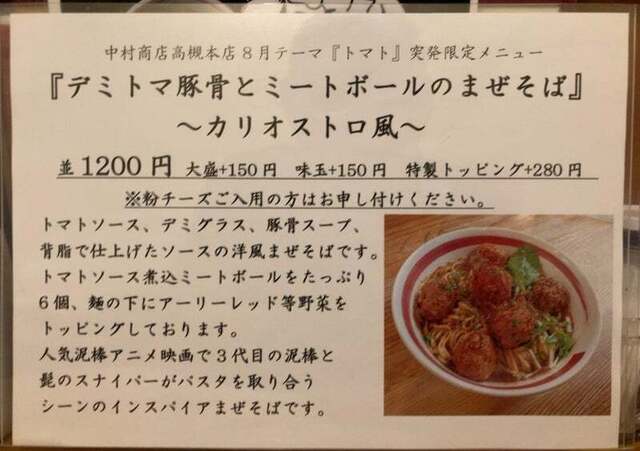 中村商店高槻本店８月テーマ『トマト』突発限定メニュー
『デミトマ豚骨とミートボールのまぜそば』
～カリオストロ風～
並 1200 円 大盛+150 円 味玉+150 円 特製トッピング+280 円
※粉チーズご入用の方はお申し付けください。
トマトソース、デミグラス、豚骨スープ、
背脂で仕上げたソースの洋風まぜそばです。
トマトソース煮込ミートボールをたっぷり
６個、麺の下にアーリーレッド等野菜を
トッピングしております。
人気泥棒アニメ映画で３代目の泥棒と
髭のスナイパーがパスタを取り合う
シーンのインスパイアまぜそばです。